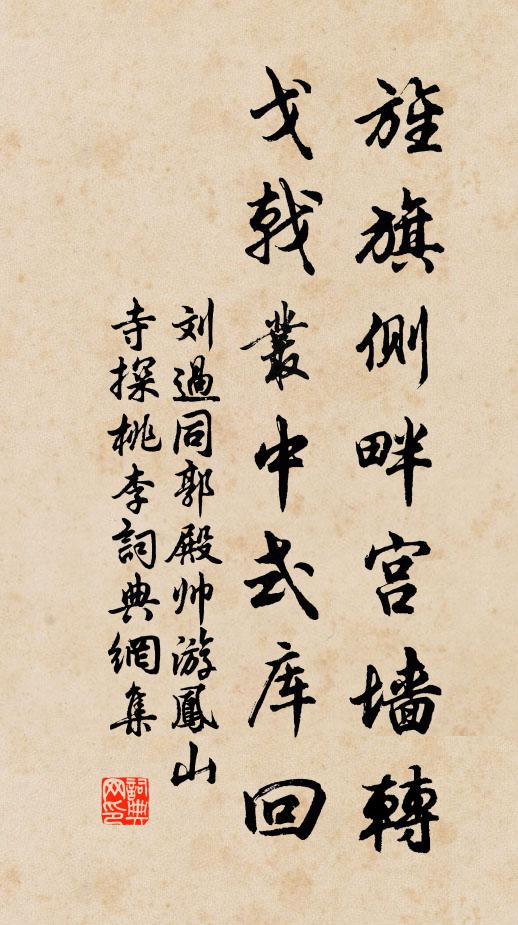 旌旗側畔宫墙轉
戈戟叢中武库回
刘過同郭殿帅游鳳山
寺探桃李詞典網集
詞典
网印